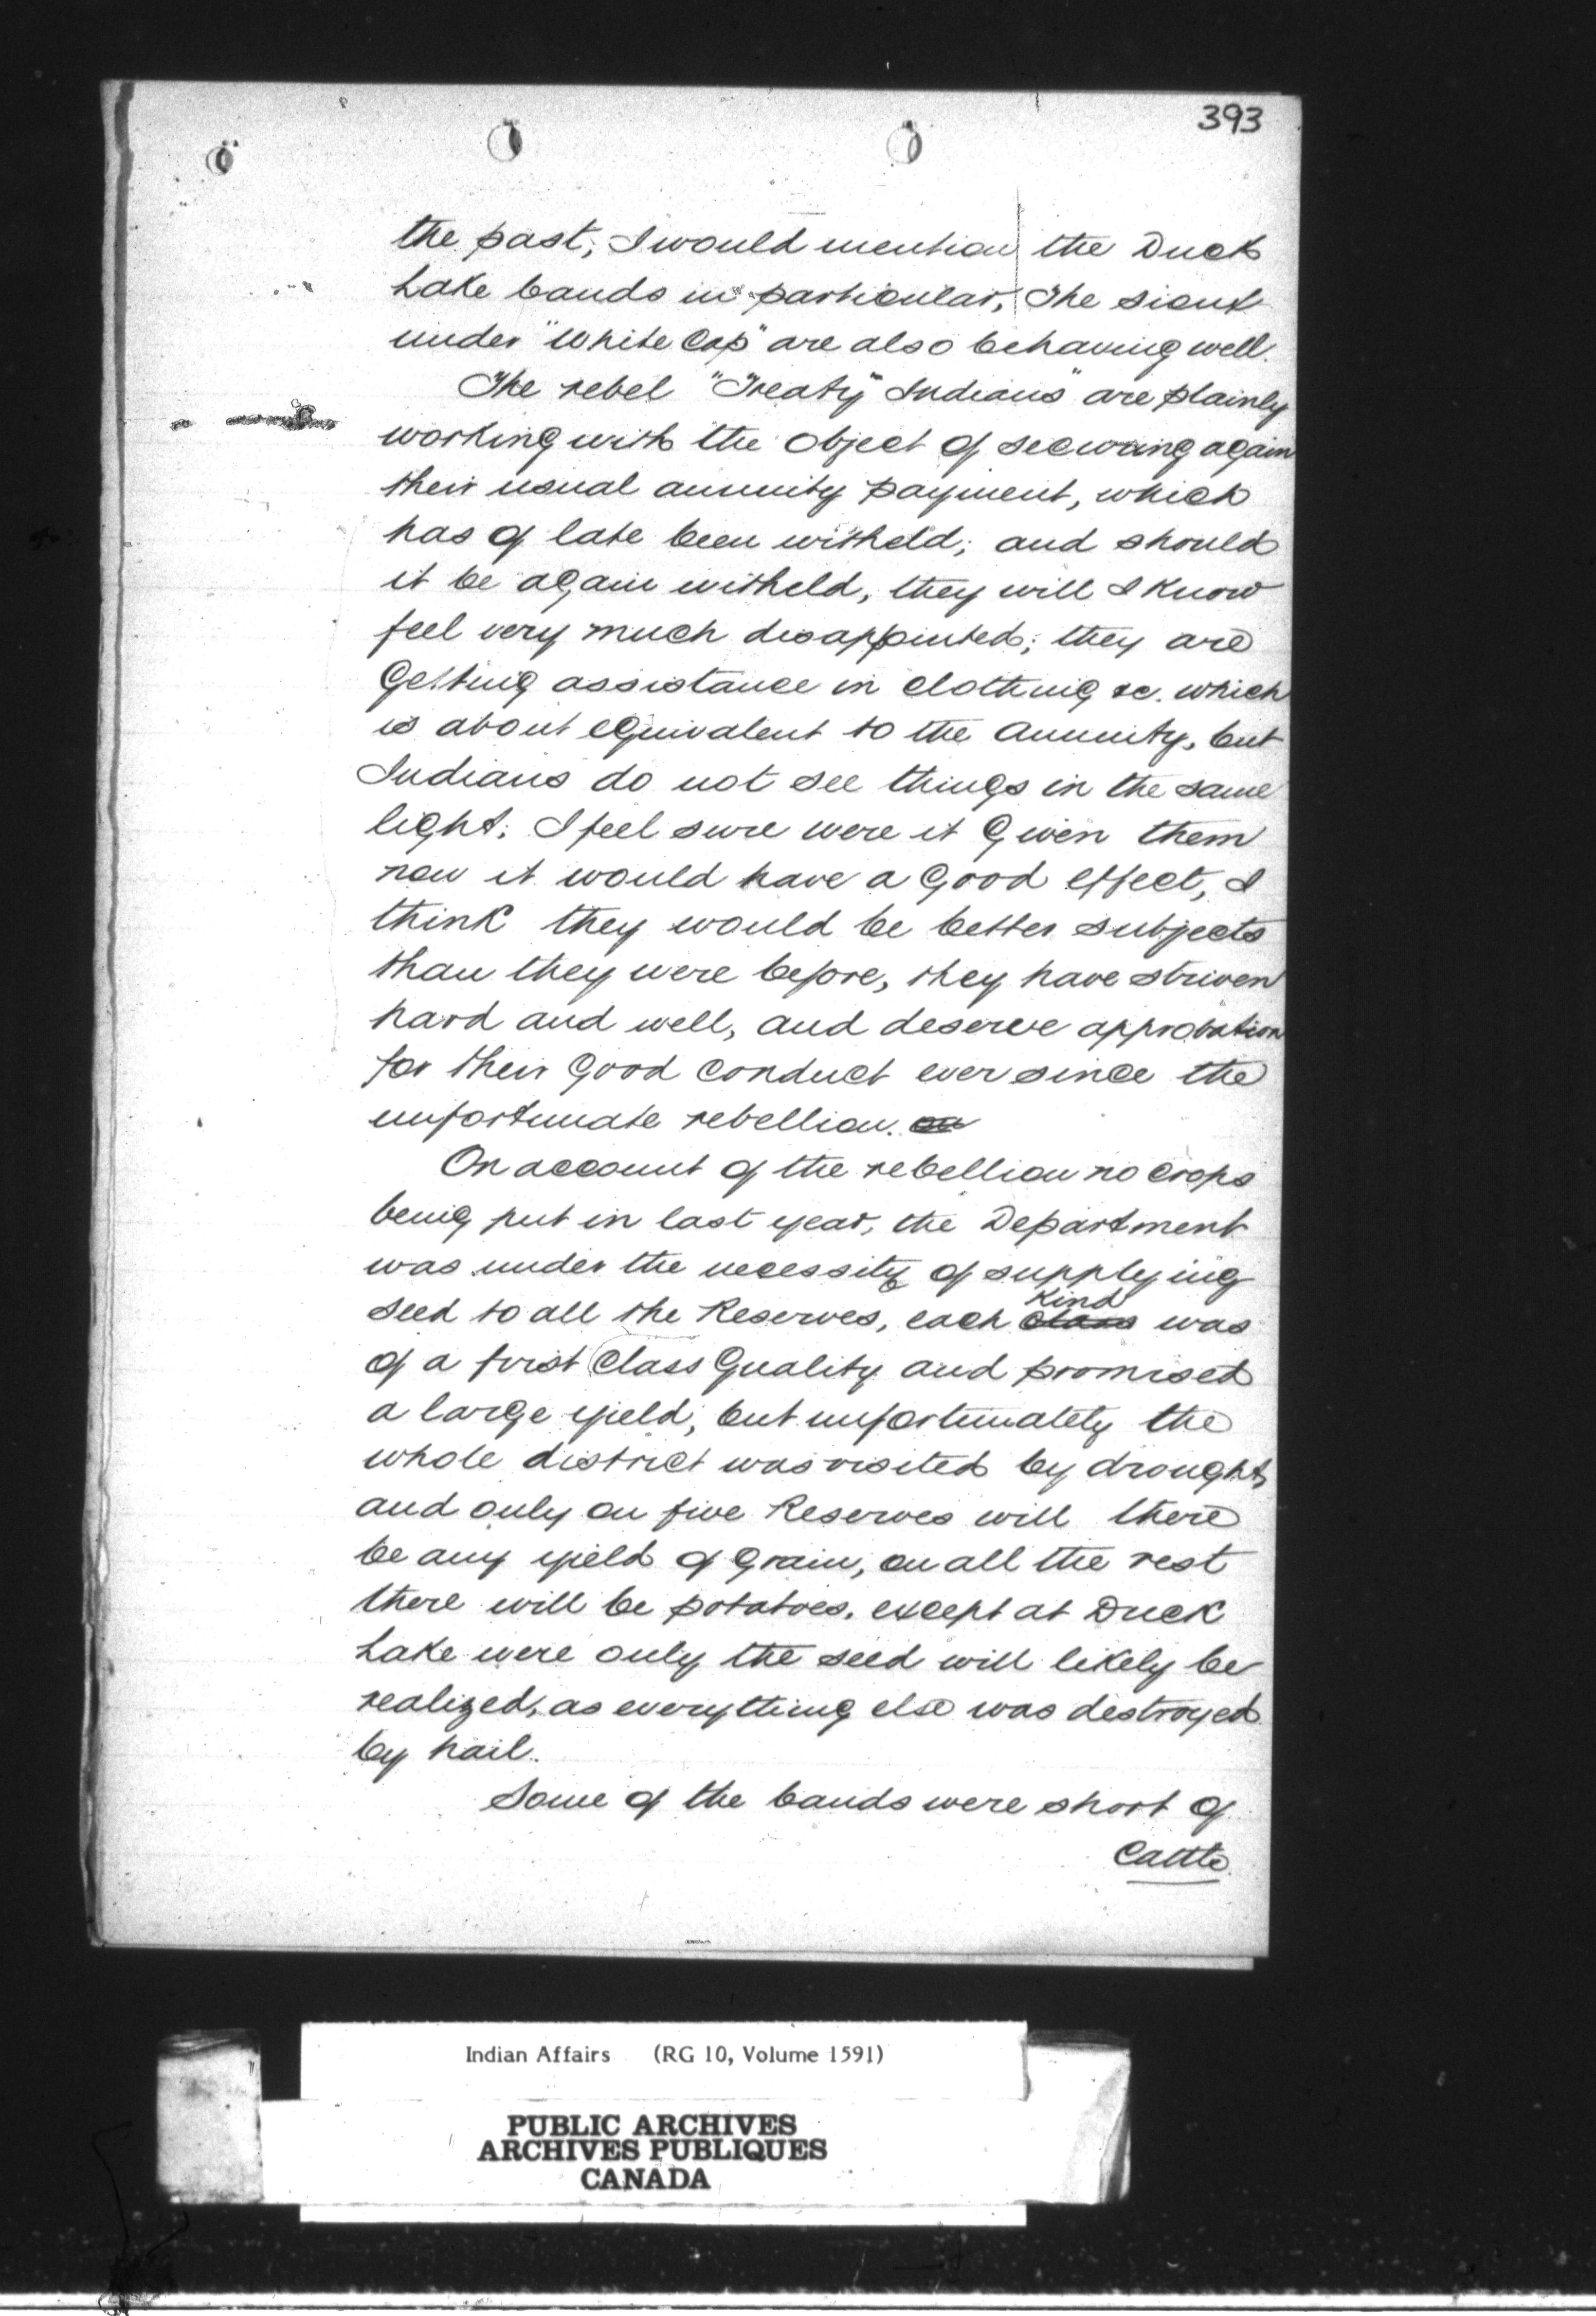 393
the past; I would mention the Duck
Lake bands in particular, The sioux
under "White Cap" are also behaving well.
The rebel "Treaty" Indians" are plainly
working with the object of securing again
their usual annuity payment, which
has of late been witheld; and should
it be again witheld, they will I know
feel very much disappointed; they are
getting assistance in clothing &c. which
is about equivalent to the annuity, but
Indians do not see things in the same
light; I feel sure were it given them
now it would have a good effect, I
think they would be better subjects
than they were before, they have striven
hard and well, and deserve approbation
for their good conduct ever since the
unfortunate rebellion. on
On account of the rebellion no crops
being put in last year, the Department
was under the necessity of supplying
Kind
seed to all the Reserves, each class was
of a first class quality and promised
a large yield; but unfortunately the
whole district was visited by drought,
and only on five Reserves will there
be any yield of grain, on all the rest
there will be potatoes, except at Duck
Lake were only the seed will likely be
realized, as everything else was destroyed
by hail.
Some of the bands were short of
Cattle
Indian Affairs (RG 10, Volume 1591)
PUBLIC ARCHIVES
ARCHIVES PUBLIQUES
CANADA